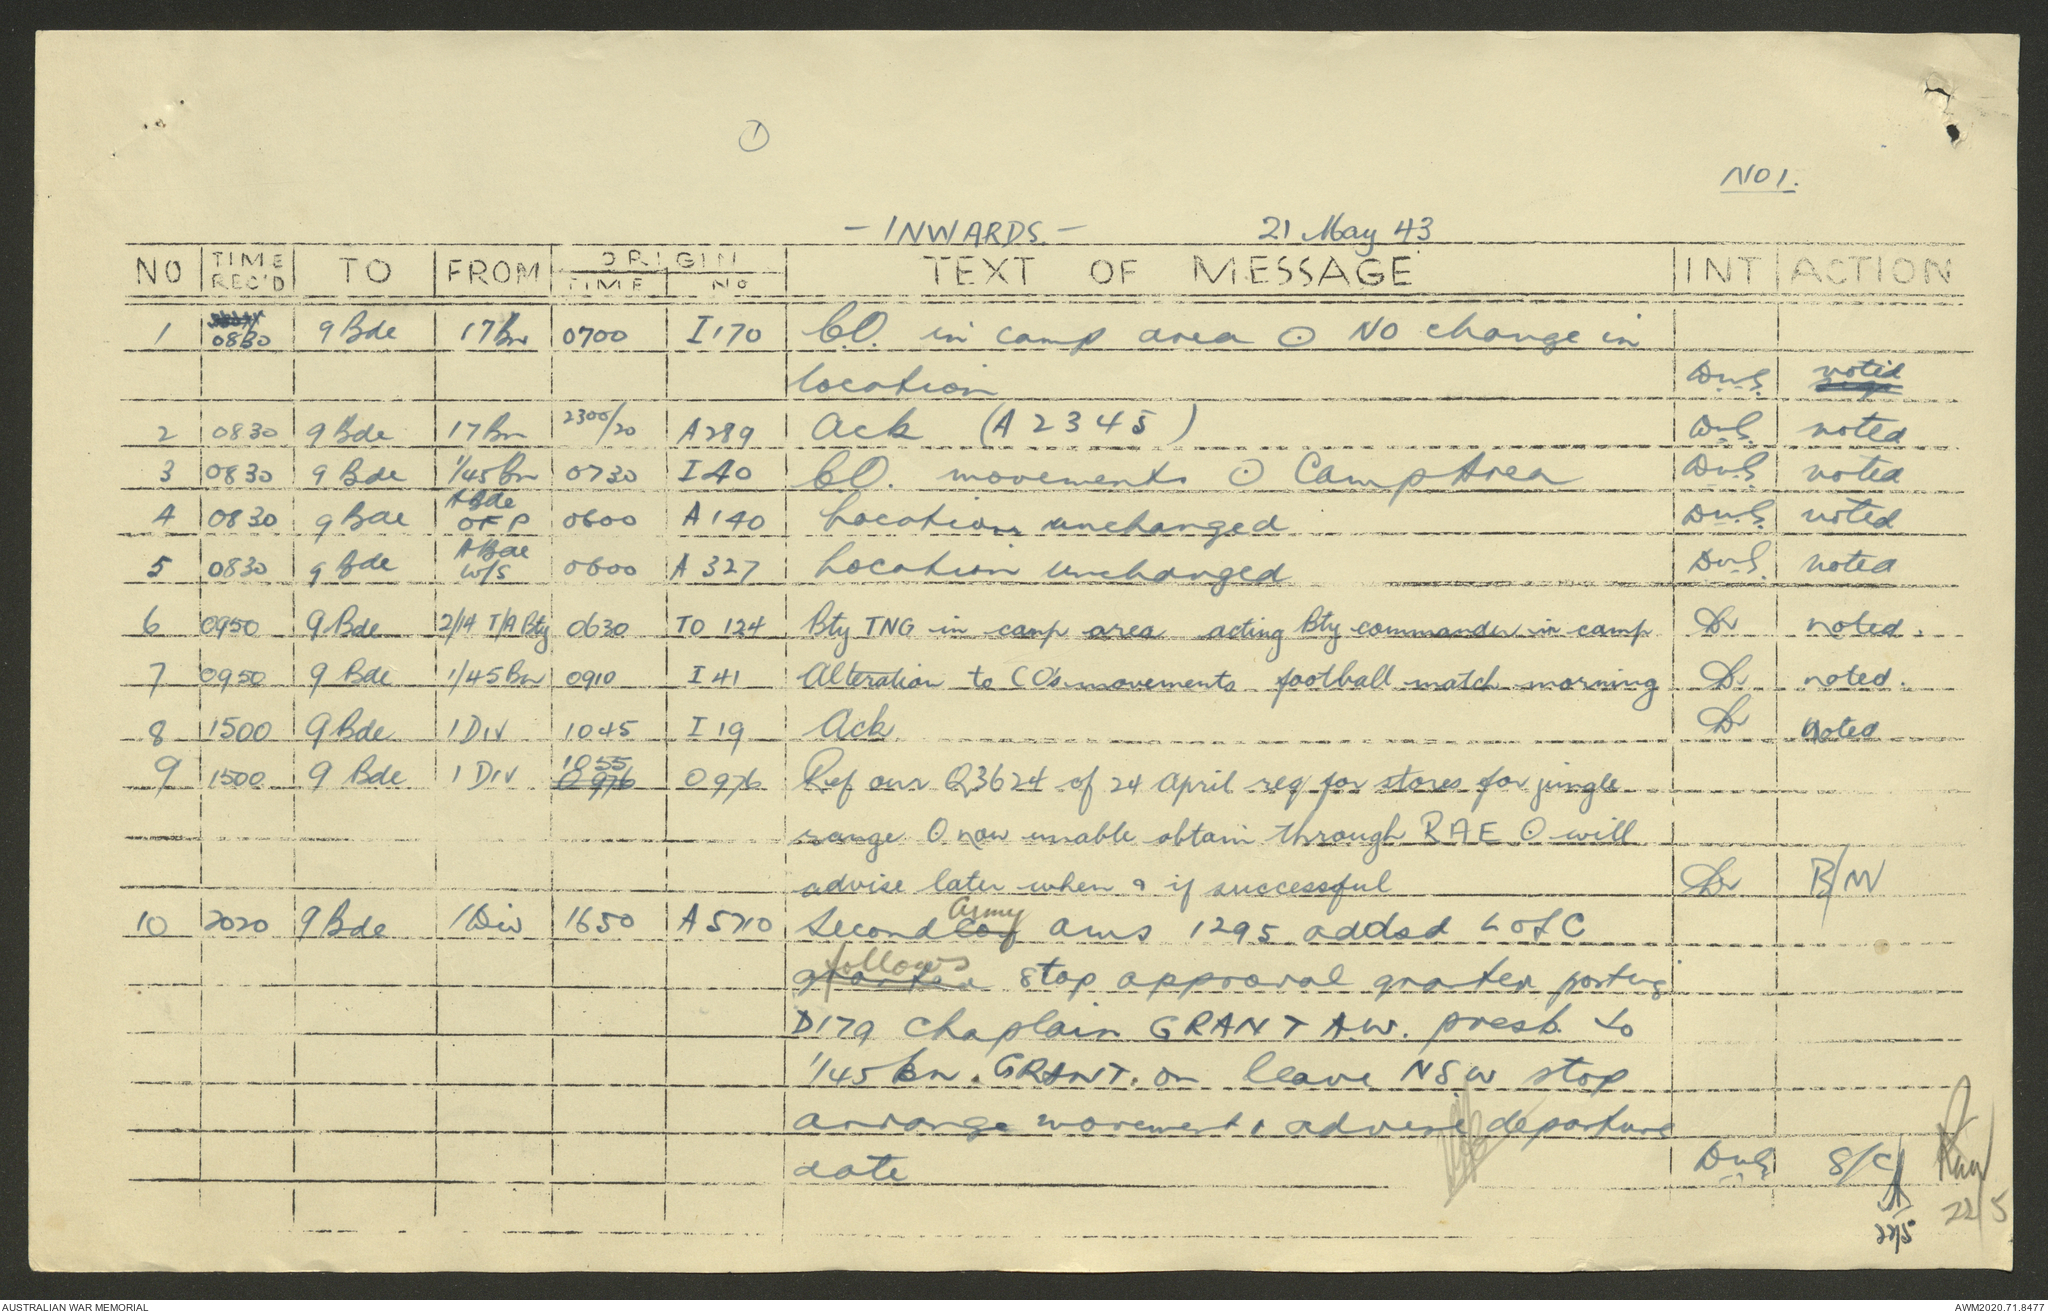 1
NO 1.
- INWARDS. - 21 May 43
NO TIME REC'D TO FROM ORIGIN TIME No TEXT OF MESSAGE INT ACTION
1 0830 9 Bde 17 Bn 0700 I 170 C.O. in camp area ⊙ NO change in
location DWS. noted
2 0830 9 Bde 17 Bn 2300/20 A289 Ack (A 2345) DWS. noted
3 0830 9 Bde 1/45 Bn 0730 I 40 C.O. movements ⊙ Camp Area DWS. noted
4 0830 9 Bde A Bde OFP 0600 A140 Location unchanged DWS. noted
5 0830 9 Bde A Bde W/S 0600 A 327 Location unchanged DWS. noted
6 0950 9 Bde 2/14 T/A Bty 0630 TO 124 Bty TNG in camp area acting Bty commander in camp noted.
7 0950 9 Bde 1/45 Bn 0910 I 41 Alteration to CO's movements football match morning noted.
8 1500 9 Bde 1 DIV 1045 I 19 Ack noted
9 1500 9 Bde 1 DIV 1055 0976 0976 Ref our Q3624 of 24 April req for stores for jungle
range O now unable obtain through RAE ⊙ will
advise later when & if successful B/M
10 2020 9 Bde 1 Div 1650 A 5710 Second Army aws 1295 added L of C
follows stop approval granted posting
D179 Chaplain GRANT A.W. presb. to
1/45 bn. GRANT. on leave NSW stop
arrange movement & advise departure
date DWS S/C
22/5
22/5
AUSTRALIAN WAR MEMORIAL AWM2020.71.8477